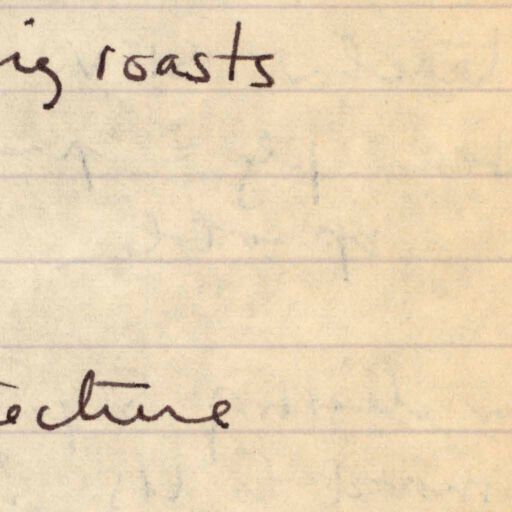 ig roasts
ecture